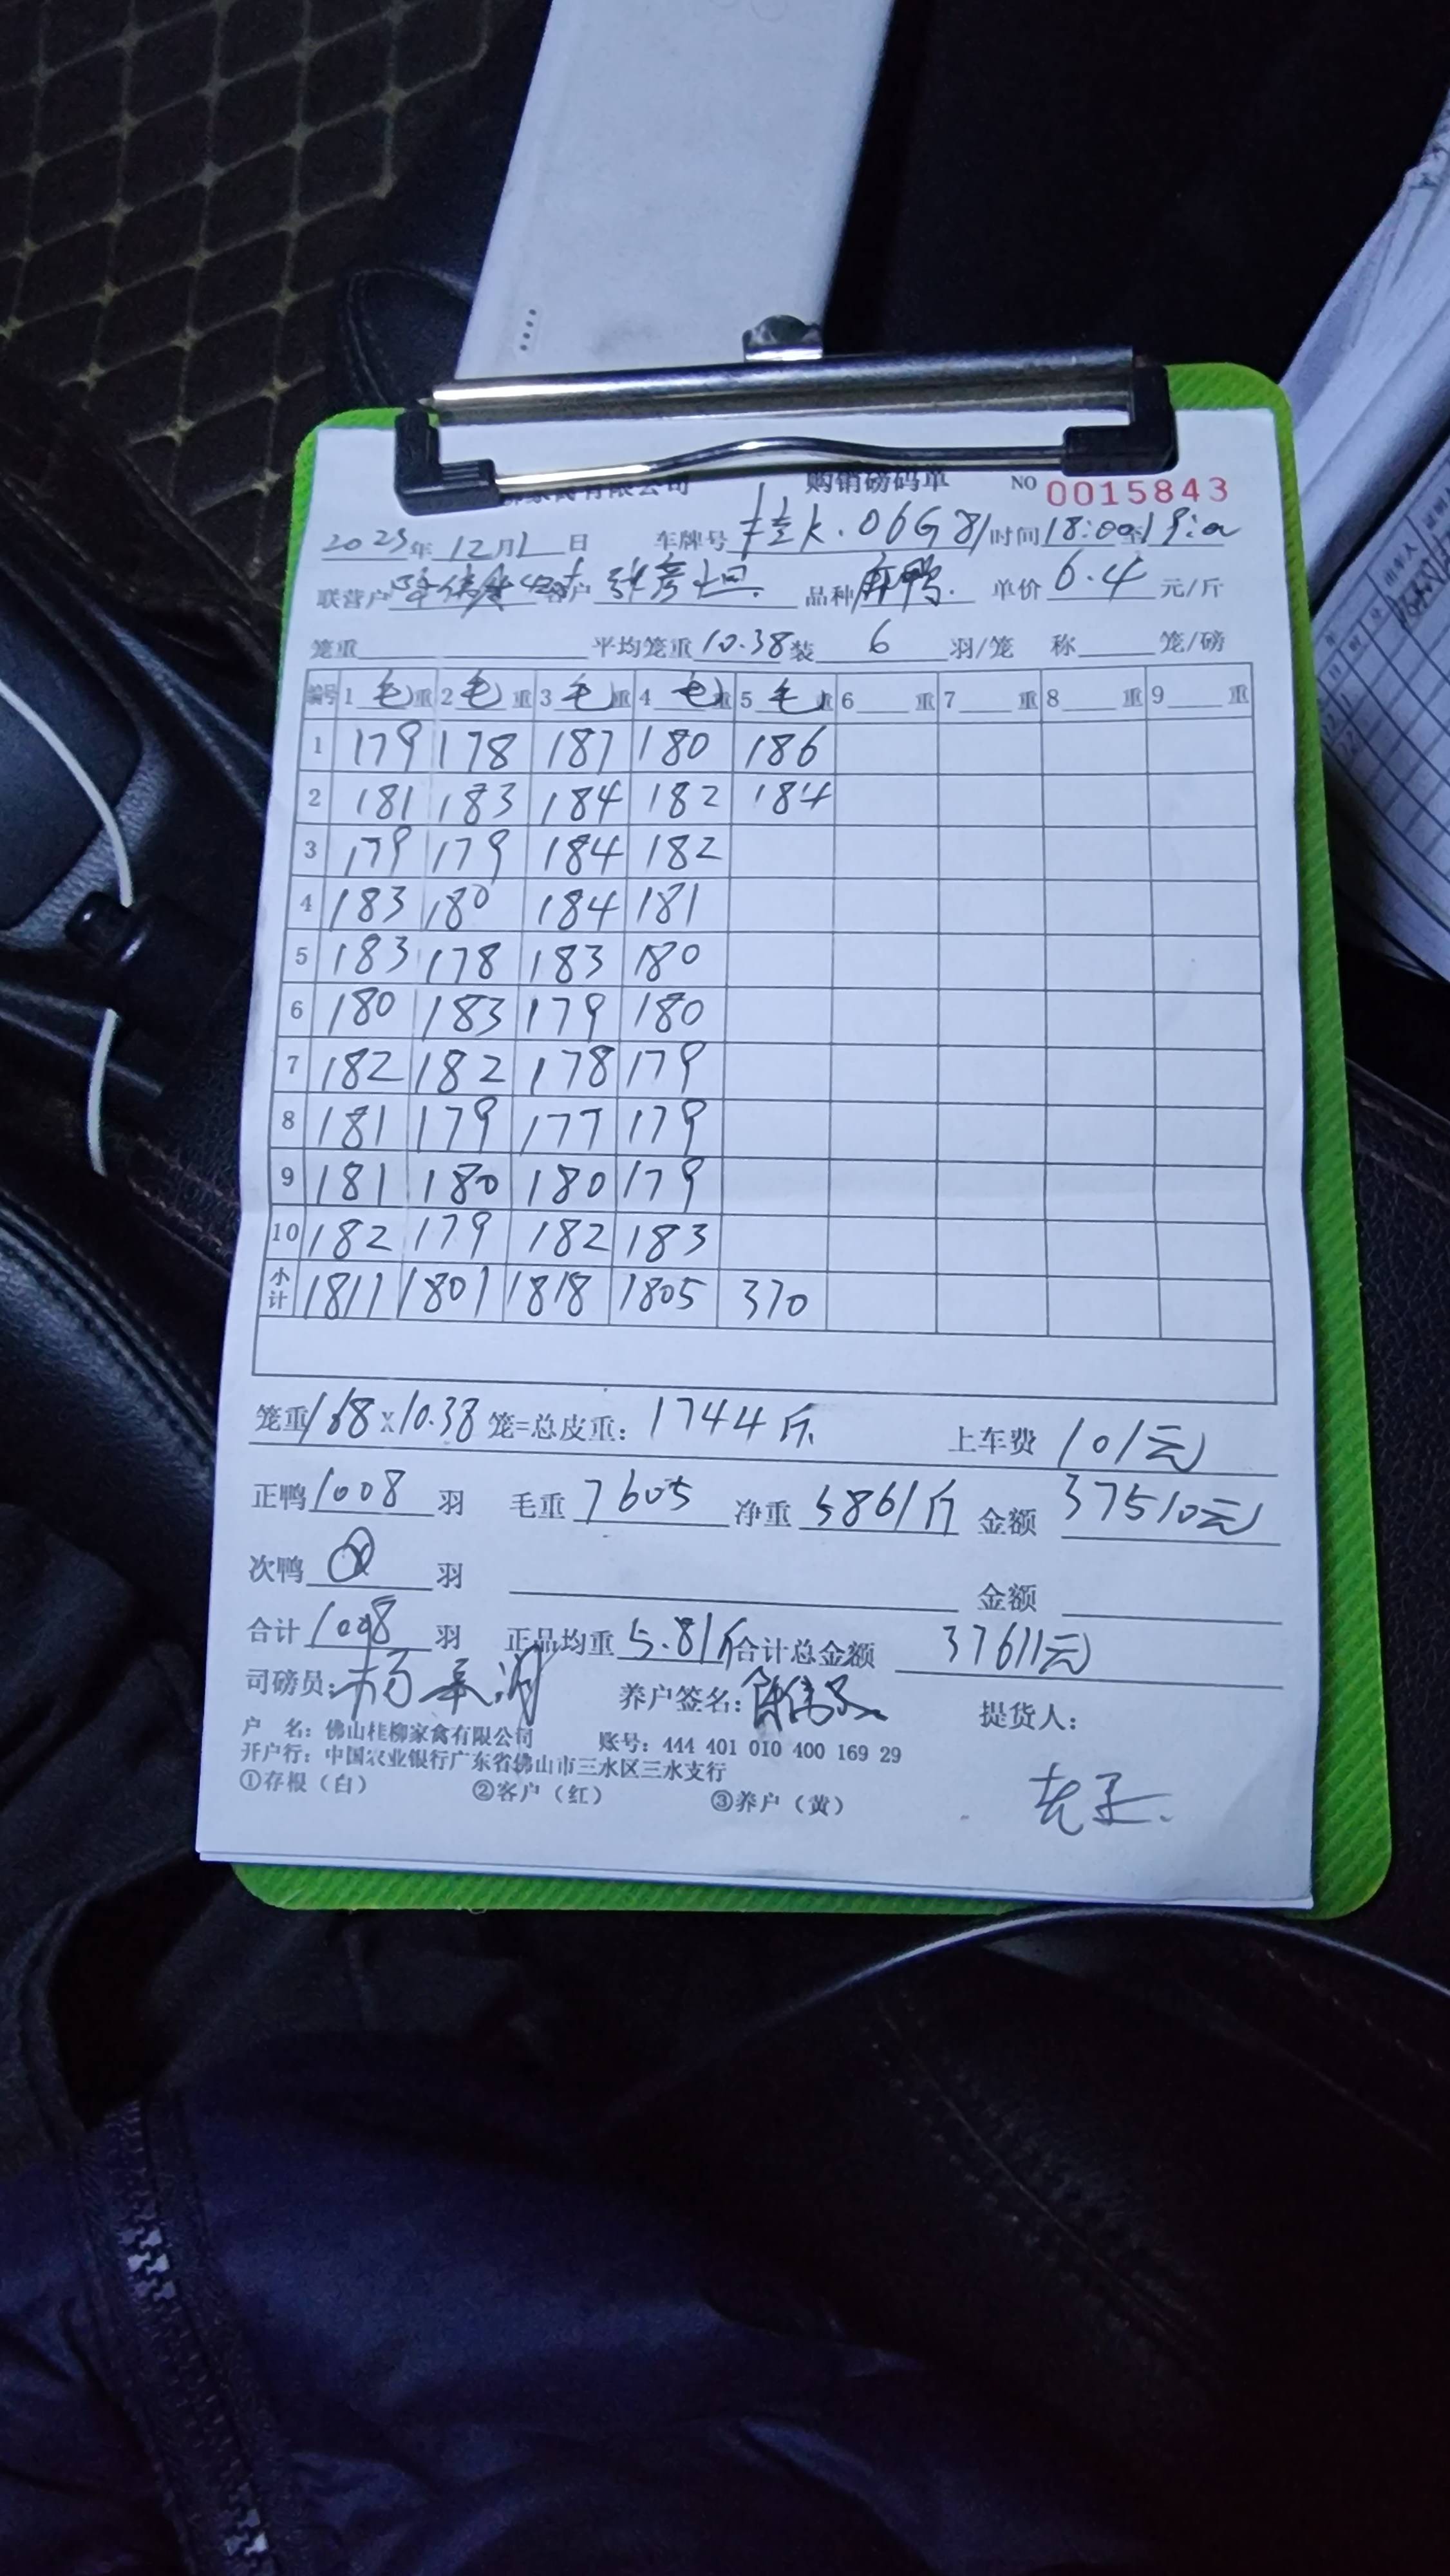 家禽有限公司 购销磅码单 NO 0015843
2023年 12月1日 车牌号 桂K.06G81 时间18:00至19:00
联营户 客户 张彦恒 品种 麻鸭 单价 6.4 元/斤
笼重 平均笼重 10.38 装 6 羽/笼 称 笼/磅
编号 1 毛 重 2 毛 重 3 毛 重 4 毛 重 5 毛 重 6 重 7 重 8 重 9 重
1 179 178 187 180 186
2 181 183 184 182 184
3 179 179 184 182
4 183 180 184 181
5 183 178 183 180
6 180 183 179 180
7 182 182 178 179
8 181 179 177 179
9 181 180 180 179
10 182 179 182 183
小计 1811 1801 1818 1805 370
笼重 168 x 10.38 笼=总皮重: 1744斤 上车费 101元
正鸭 1008 羽 毛重 7605 净重 5861斤 金额 37510元
次鸭 羽 金额
合计 1008 羽 正品均重 5.81斤 合计总金额 37611元
司磅员: 杨 养户签名: 提货人:
户 名: 佛山桂柳家禽有限公司 账号: 444 401 010 400 169 29
开户行: 中国农业银行广东省佛山市三水区三水支行
①存根（白） ②客户（红） ③养户（黄）